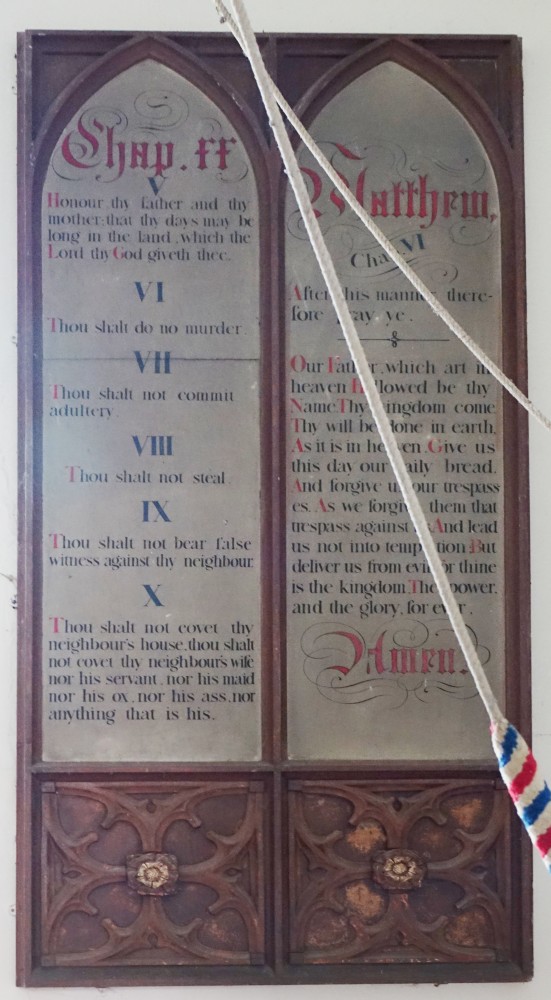 Chap. XX
V
Honour thy father and thy
mother: that thy days may be
long in the land, which the
Lord thy God giveth thee.
VI
Thou shalt do no murder.
VII
Thou shalt not commit
adultery.
VIII
Thou shalt not steal.
IX
Thou shalt not bear false
witness against thy neighbour.
X
Thou shalt not covet thy
neighbour's house, thou shalt
not covet thy neighbour's wife
nor his servant, nor his maid
nor his ox, nor his ass, nor
anything that is his.
Matthew,
Chap VI
After this manner there-
fore pray ye.
Our Father, which art in
heaven Hallowed be thy
Name. Thy kingdom come
Thy will be done in earth,
As it is in heaven. Give us
this day our daily bread.
And forgive us our trespass
es. As we forgive them that
trespass against us And lead
us not into temptation But
deliver us from evil for thine
is the kingdom The power.
and the glory, for ever.
Amen.